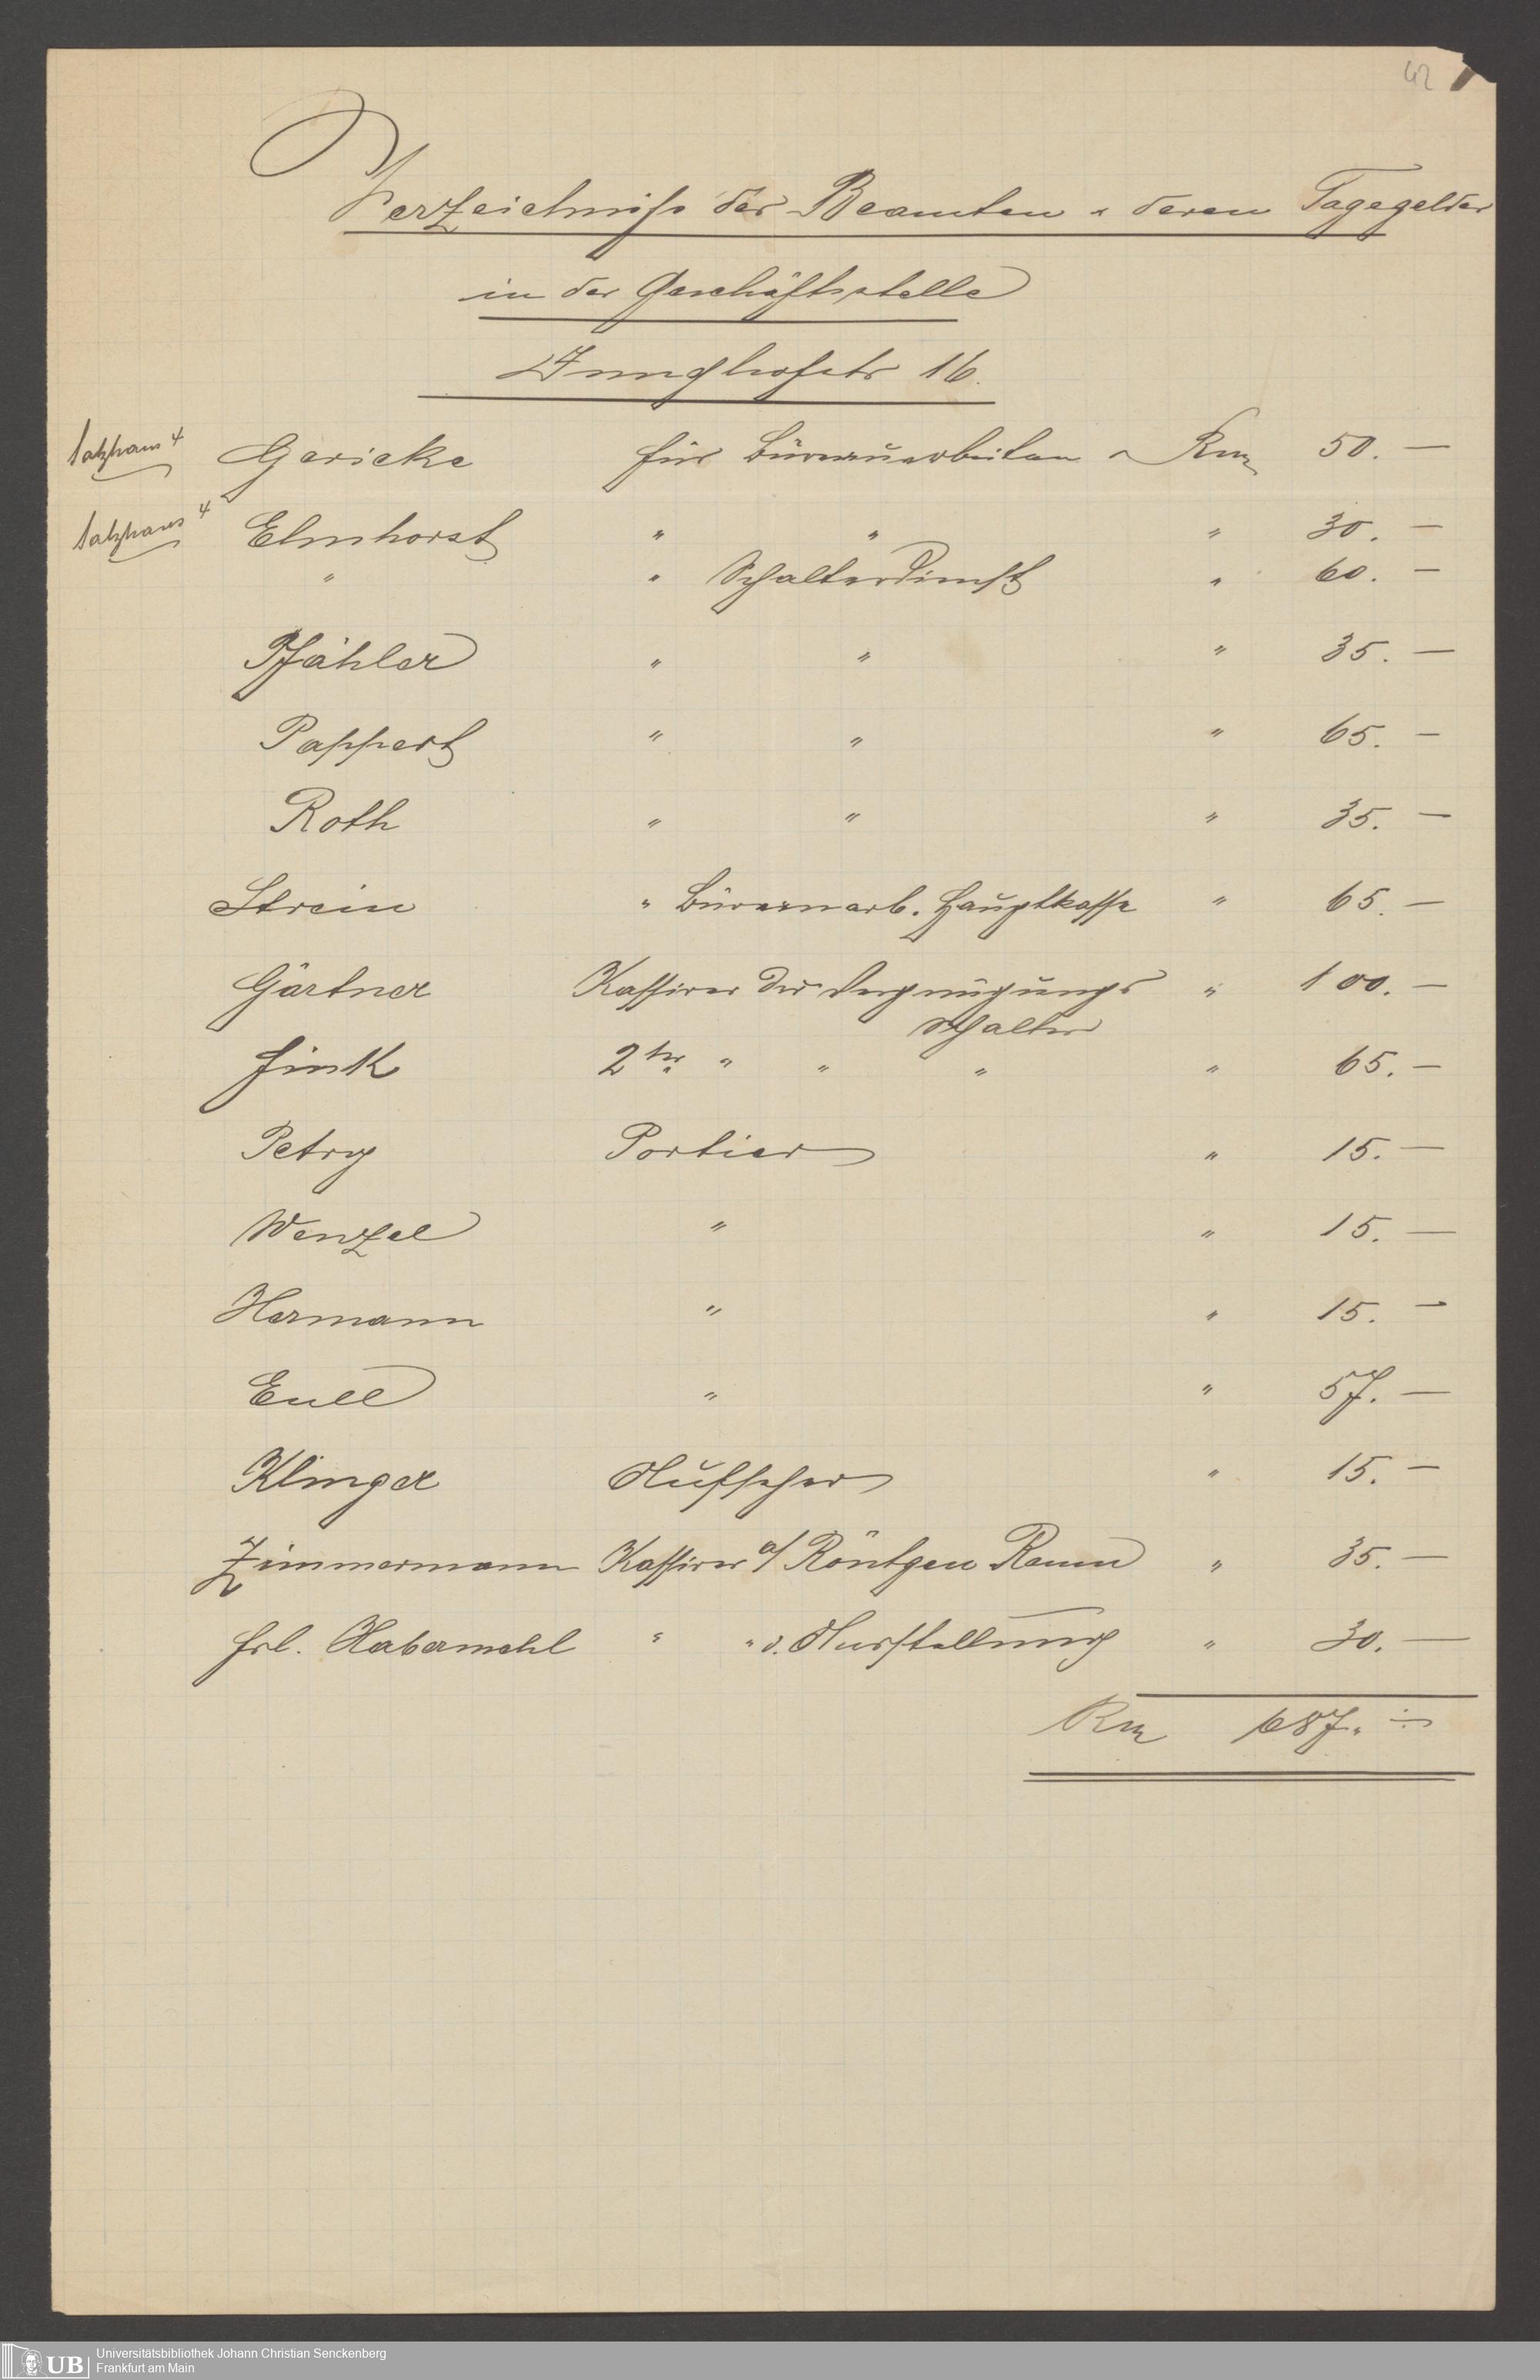 42
Verzeichniss der Beamten u. deren Tagegelder
in der Geschäftsstelle
Junghofstr 16.
Salzhaus 4 Gericke für Büreauarbeiten Rm 50. —
Salzhaus 4 Elmhorst " " " 30. —
" " Schalterdienst " 60. —
Pfähler " " " 35. —
Pappert " " " 65. —
Roth " " " 35. —
Strein " Büreauarb. Hauptkasse " 65. —
Gärtner Kassirer der Vergnügungs " 100. —
Schalter
Fink 2ter " " " " 65. —
Petry Portier " 15. —
Wenzel " " 15. —
Hermann " " 15. —
Eull " " 57. —
Klinger Aufseher " 15. —
Zimmermann Kassirer a/ Röntgen Raum " 35. —
Frl. Habermehl " " d. Ausstellung " 30. —
Rm 687. —
UB Universitätsbibliothek Johann Christian Senckenberg
Frankfurt am Main